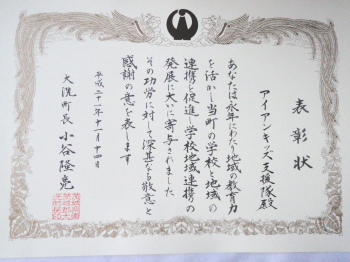 表彰状
アイアンキッズ支援隊殿
あなたは永年にわたり地域の教育力
を活かし当町の学校と地域の
連携を促進し学校地域連携の
発展に大いに寄与されました
その功労に対して深甚なる敬意と
感謝の意を表します
平成二十一年十一月十四日
大洗町長 小谷隆亮